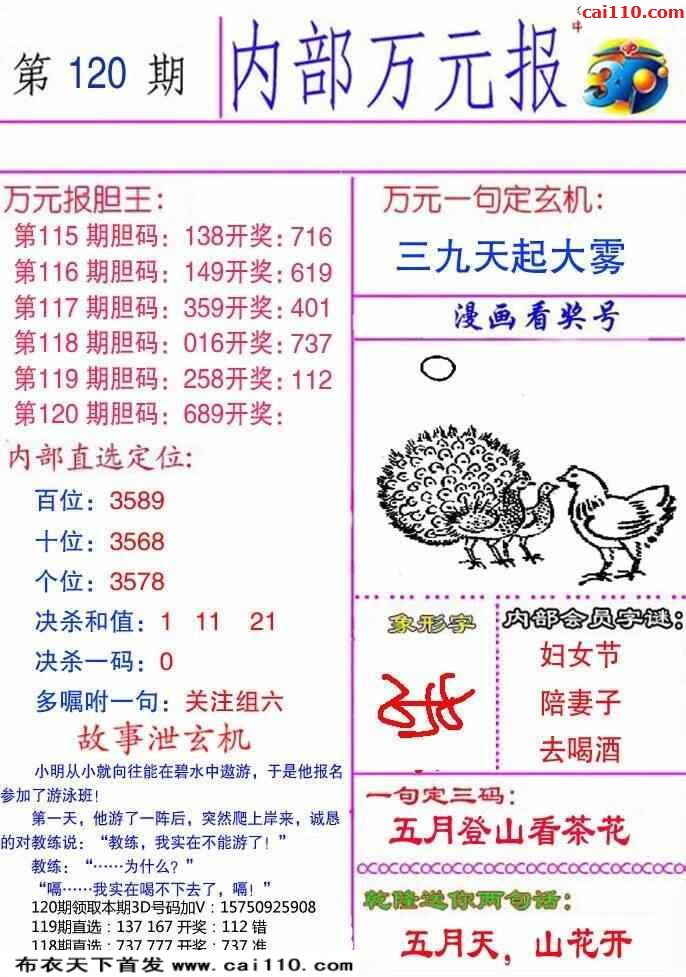 cai110.com
第 120 期
内部万元报
3D
万元报胆王：
第115 期胆码：138开奖：716
第116 期胆码：149开奖：619
第117 期胆码：359开奖：401
第118 期胆码：016开奖：737
第119 期胆码：258开奖：112
第120 期胆码：689开奖：
内部直选定位：
百位：3589
十位：3568
个位：3578
决杀和值：1 11 21
决杀一码：0
多嘱咐一句：关注组六
故事泄玄机
小明从小就向往能在碧水中遨游，于是他报名
参加了游泳班！
第一天，他游了一阵后，突然爬上岸来，诚恳
的对教练说：“教练，我实在不能游了！”
教练：“……为什么？”
“嗝……我实在喝不下去了，嗝！”
120期领取本期3D号码加V：15750925908
119期直选：137 167 开奖：112 错
118期直选：737 777 开奖：737 准
布衣天下首发 www.cai110.com
万元一句定玄机：
三九天起大雾
漫画看奖号
象形字
内部会员字谜：
妇女节
陪妻子
去喝酒
一句定三码：
五月登山看茶花
乾隆送你两句话：
五月天，山花开